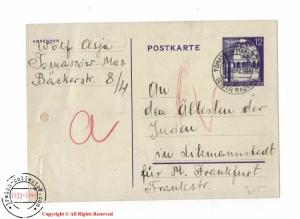 ABSENDER
Wolf Asja
Tomaszów-Maz
Bäckerstr. 8/4
POSTKARTE
12
a
An
den Ältesten der
Juden
in Litzmannstadt
für M. Frankfurt
Franzstr.
Copyright © All Rights Reserved
1933-1945